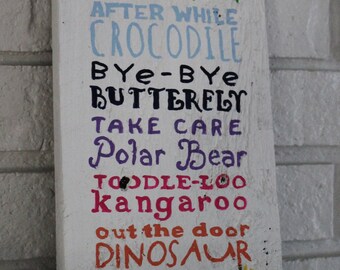 AFTER WHILE
CROCODILE
BYe-BYe
BUTTERFLY
TAKE CARE
Polar Bear
TOODLE-LOO
kangaroo
out the door
DINOSAUR